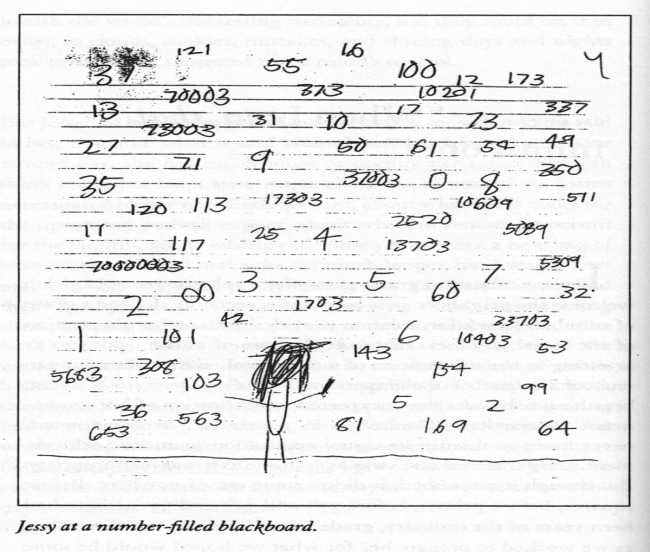 37 121 55 16 100 12 173 4
70003 373 10201
13 31 10 17 73 337
73003
27 71 9 50 61 34 49
35 37003 0 8 350
120 113 17303 10609 511
11 117 25 4 2620 5039
13703
70000003 3 5 7 5309
2 ∞ 1703 60 32
1 101 42 6 33703
143 10403 53
5663 308 103 154 99
36 5 2
653 563 81 169 64
Jessy at a number-filled blackboard.